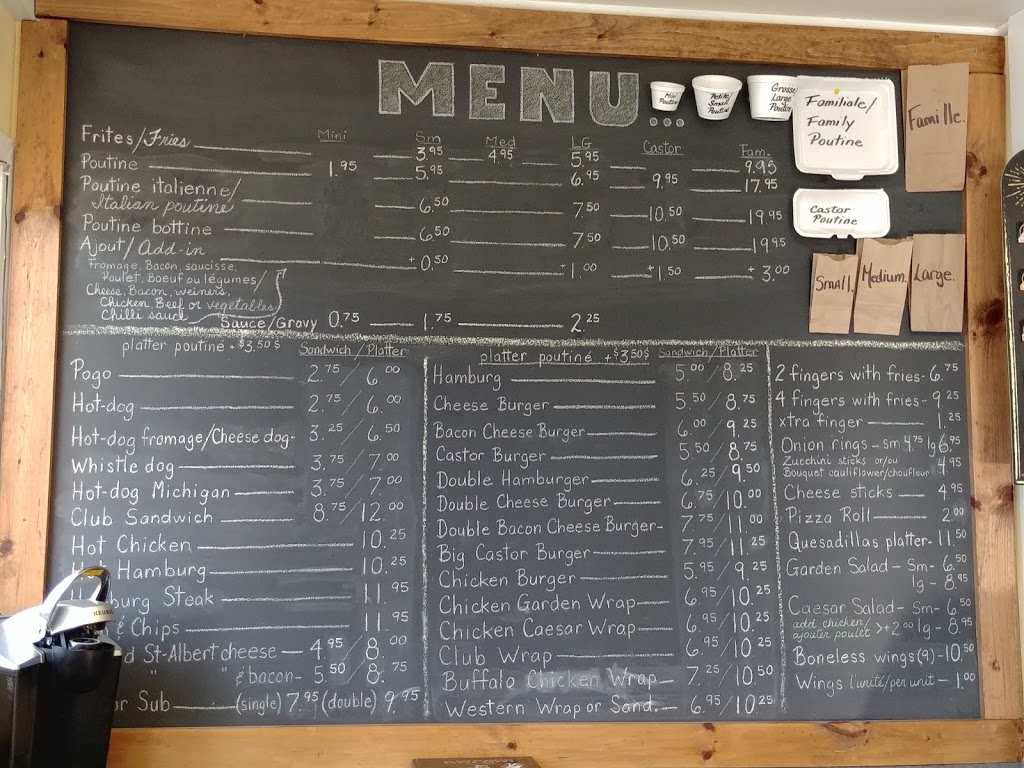 MENU...
Mini Poutine
Petite/ Small Poutine
Grosse Large Poutine
Familiale/
Family
Poutine
Famille.
Castor
Poutine
Small.
Medium.
Large.
Mini Sm Med LG Castor Fam.
Frites/Fries 3.95 4.95 5.95 9.95
Poutine 1.95 5.95 6.95 9.95 17.95
Poutine italienne/
Italian poutine 6.50 7.50 10.50 19.95
Poutine bottine 6.50 7.50 10.50 19.95
Ajout/Add-in + 0.50 + 1.00 + 1.50 + 3.00
Fromage, Bacon, saucisse,
Poulet, Boeuf ou légumes/
Cheese, Bacon, weiners,
Chicken, Beef or vegetables
Chilli sauce
Sauce/Gravy 0.75 1.75 2.25
platter poutine + $3.50$
Sandwich/Platter
Pogo 2.75/6.00
Hot-dog 2.75/6.00
Hot-dog fromage/Cheese dog- 3.25/6.50
Whistle dog 3.75/7.00
Hot-dog Michigan 3.75/7.00
Club Sandwich 8.75/12.00
Hot Chicken 10.25
Hamburg 10.25
Steak 11.95
& Chips 11.95
St-Albert cheese 4.95/8.00
" & bacon- 5.50/8.75
Sub (single) 7.95 (double) 9.95
platter poutine + $3.50$
Sandwich/Platter
Hamburg 5.00/8.25
Cheese Burger 5.50/8.75
Bacon Cheese Burger 6.00/9.25
Castor Burger 5.50/8.75
Double Hamburger 6.25/9.50
Double Cheese Burger 6.75/10.00
Double Bacon Cheese Burger- 7.75/11.00
Big Castor Burger 7.95/11.25
Chicken Burger 5.95/9.25
Chicken Garden Wrap 6.95/10.25
Chicken Caesar Wrap 6.95/10.25
Club Wrap 6.95/10.25
Buffalo Chicken Wrap 7.25/10.50
Western Wrap or Sand. 6.95/10.25
2 fingers with fries- 6.75
4 fingers with fries- 9.25
xtra finger 1.25
Onion rings - sm 4.75 lg 6.95
Zucchini sticks or/ou
Bouquet cauliflower/choufleur 4.95
Cheese sticks 4.95
Pizza Roll 2.00
Quesadillas platter- 11.50
Garden Salad - Sm- 6.50
lg - 8.95
Caesar Salad - Sm- 6.50
add chicken/
ajouter poulet >+2.00 lg- 8.95
Boneless wings (9)-10.50
Wings l'unité/per unit - 1.00
KEURIG